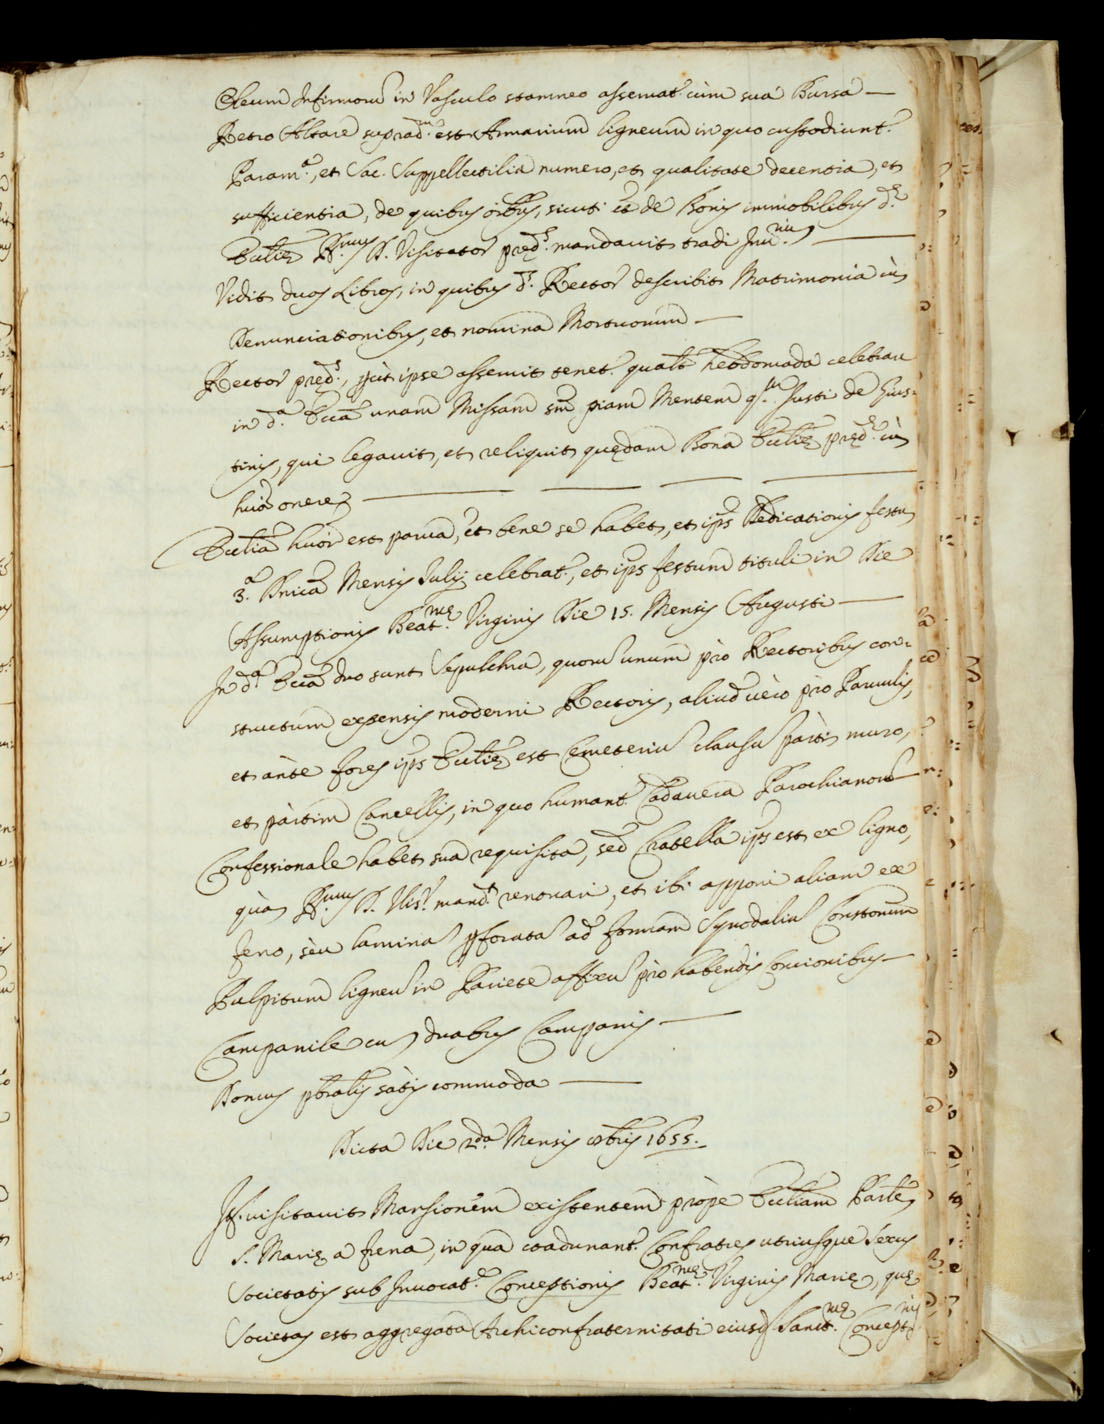 Oleum Infirmorũ in Vasculo stamneo asservat. cùm sua Bursa —
Retro Altare suprad.m est Armarium ligneum in quo custodiunt.r
Param.a, et Sac. Suppellectilia numero, et qualitate decentia, et
sufficientia, de quibus oĩbus, sicuti et de Bonis immobilibus d.ę
Eccliæ R.mus D. Visitator pręd.s mandavit tradi Inv.riu —
Vidit duos Libros, in quibus d.s Rector describit Matrimonia cũ
Denunciationibus, et nomina Mortuorum —
Rector pręd.s, sicùt ipse asseruit tenet. qualt hebdomada celebrare
in d.a Eccã unam Missam sm̃ piam Mentem q.m Justi de Jus-
tinis, qui legavit, et reliquit quędam Bona Eccliæ pręd.ę cũ
huiõ onere —
Ecclia huiõ est parva, et bene se habet, et ips Dedicationis festũ
3.a Dnica Mensis Julij celebrat., et ips festum tituli in Die
Assumptionis Beat.mę Virginis Die 15. Mensis Augusti —
In d.a Eccã duo sunt Sepulchra, quorũ unum prò Rectoribus con-
structum expensis moderni Rectoris, aliud verò prò Parvulis,
et ànte fores ips Eccliæ est Cemeteriũ clausũ pàrtim muro,
et pàrtim Cancellis, in quo humant. Cadavera Parochianorũ
Confessionale habet sua requisita, sed Cratella ips est ex ligno,
quàm R.mus D. Vis.r mand.t renovari, et ibi apponi aliam ex
ferro, sèu lamina pforata ad formam Synodaliũ Constonum
Pulpitum ligneũ in Pariete affixũ prò habendis Concionibus —
Campanile cũ duabus Campanis —
Domus pbralis sàtis commoda —
Dicta Die 2.da Mensis 8bris 1655.
Itẽ visitavit Mansionem existentem pròpe Eccliam Parlẽ
S. Marię a frena, in qua coadunant. Confratres utriusque Sexus
Societatis sub Invocat.e Conceptionis Beat.mę Virginis Marię, quę
Societas est aggregata Archiconfraternitati eiusd Sanct.mę Concept.nis